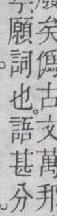 矣僞古文萬邦
願詞也。語甚分